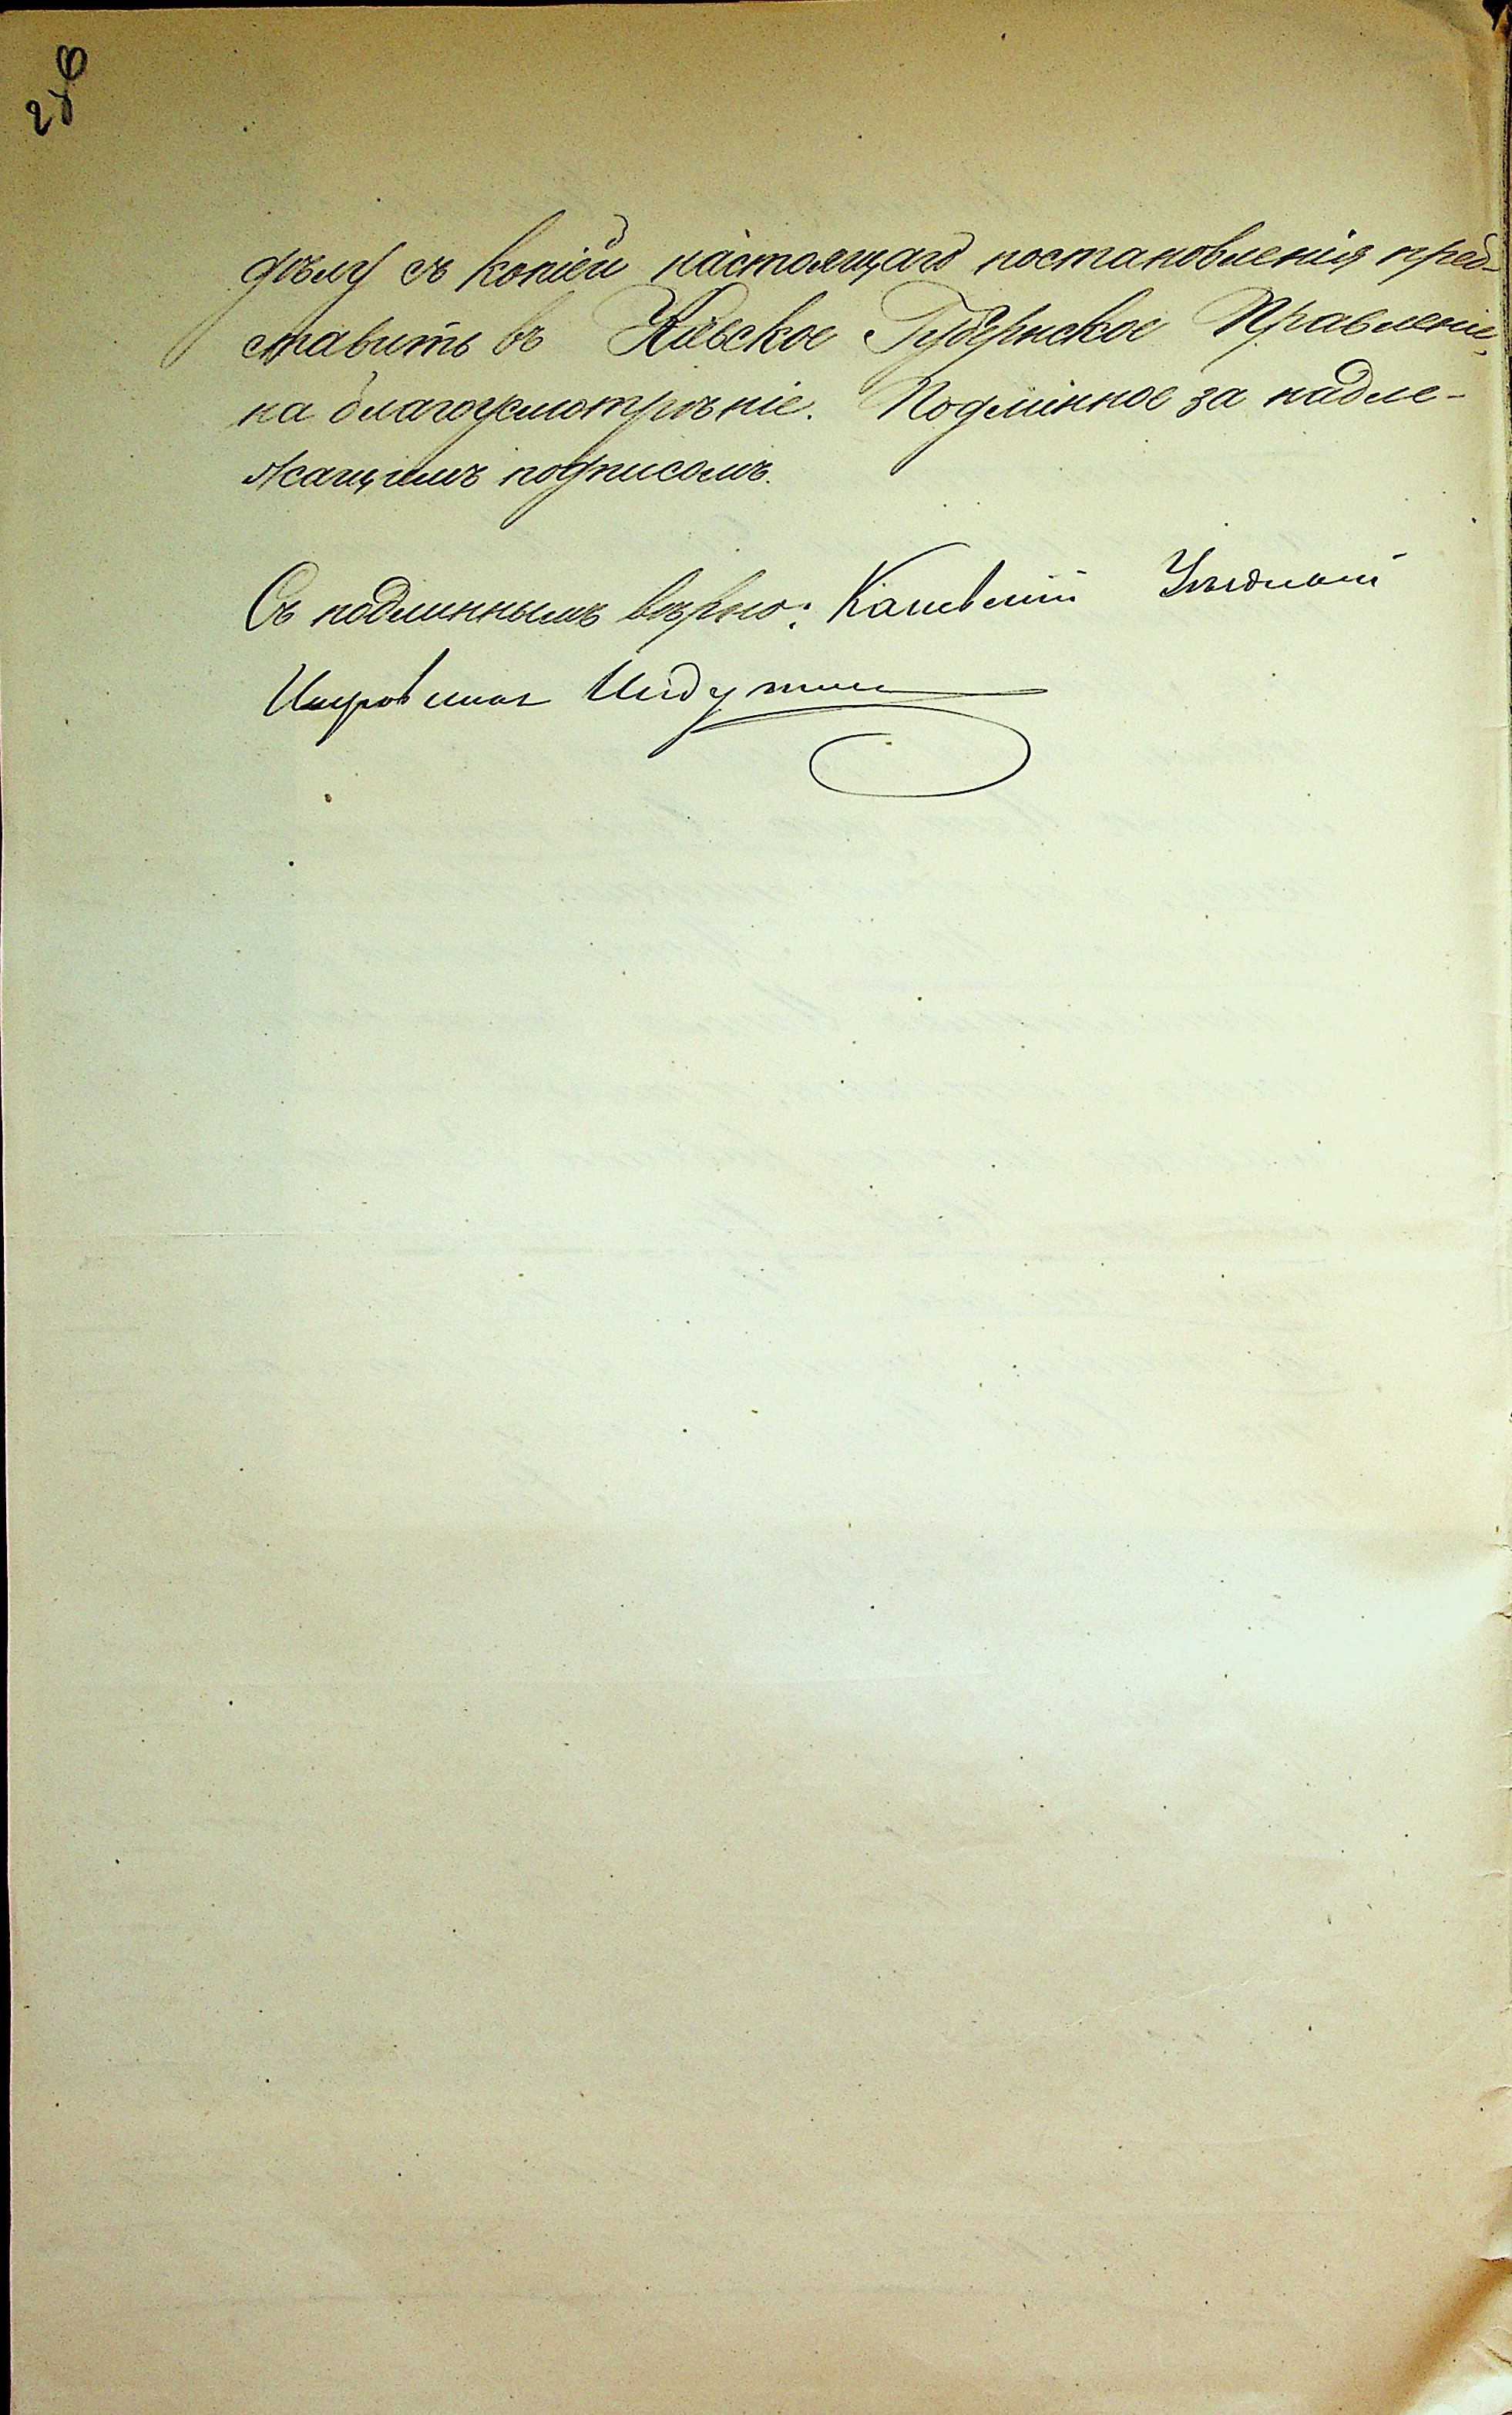 дѣлу съ копіей настоящаго постановленія пред-
ставить въ Кіевское Губернское Правленіе,
на благоусмотрѣніе. Подлинное за надле-
жащимъ подписомъ.
Съ подлиннымъ вѣрно: Каневскій Уѣздный